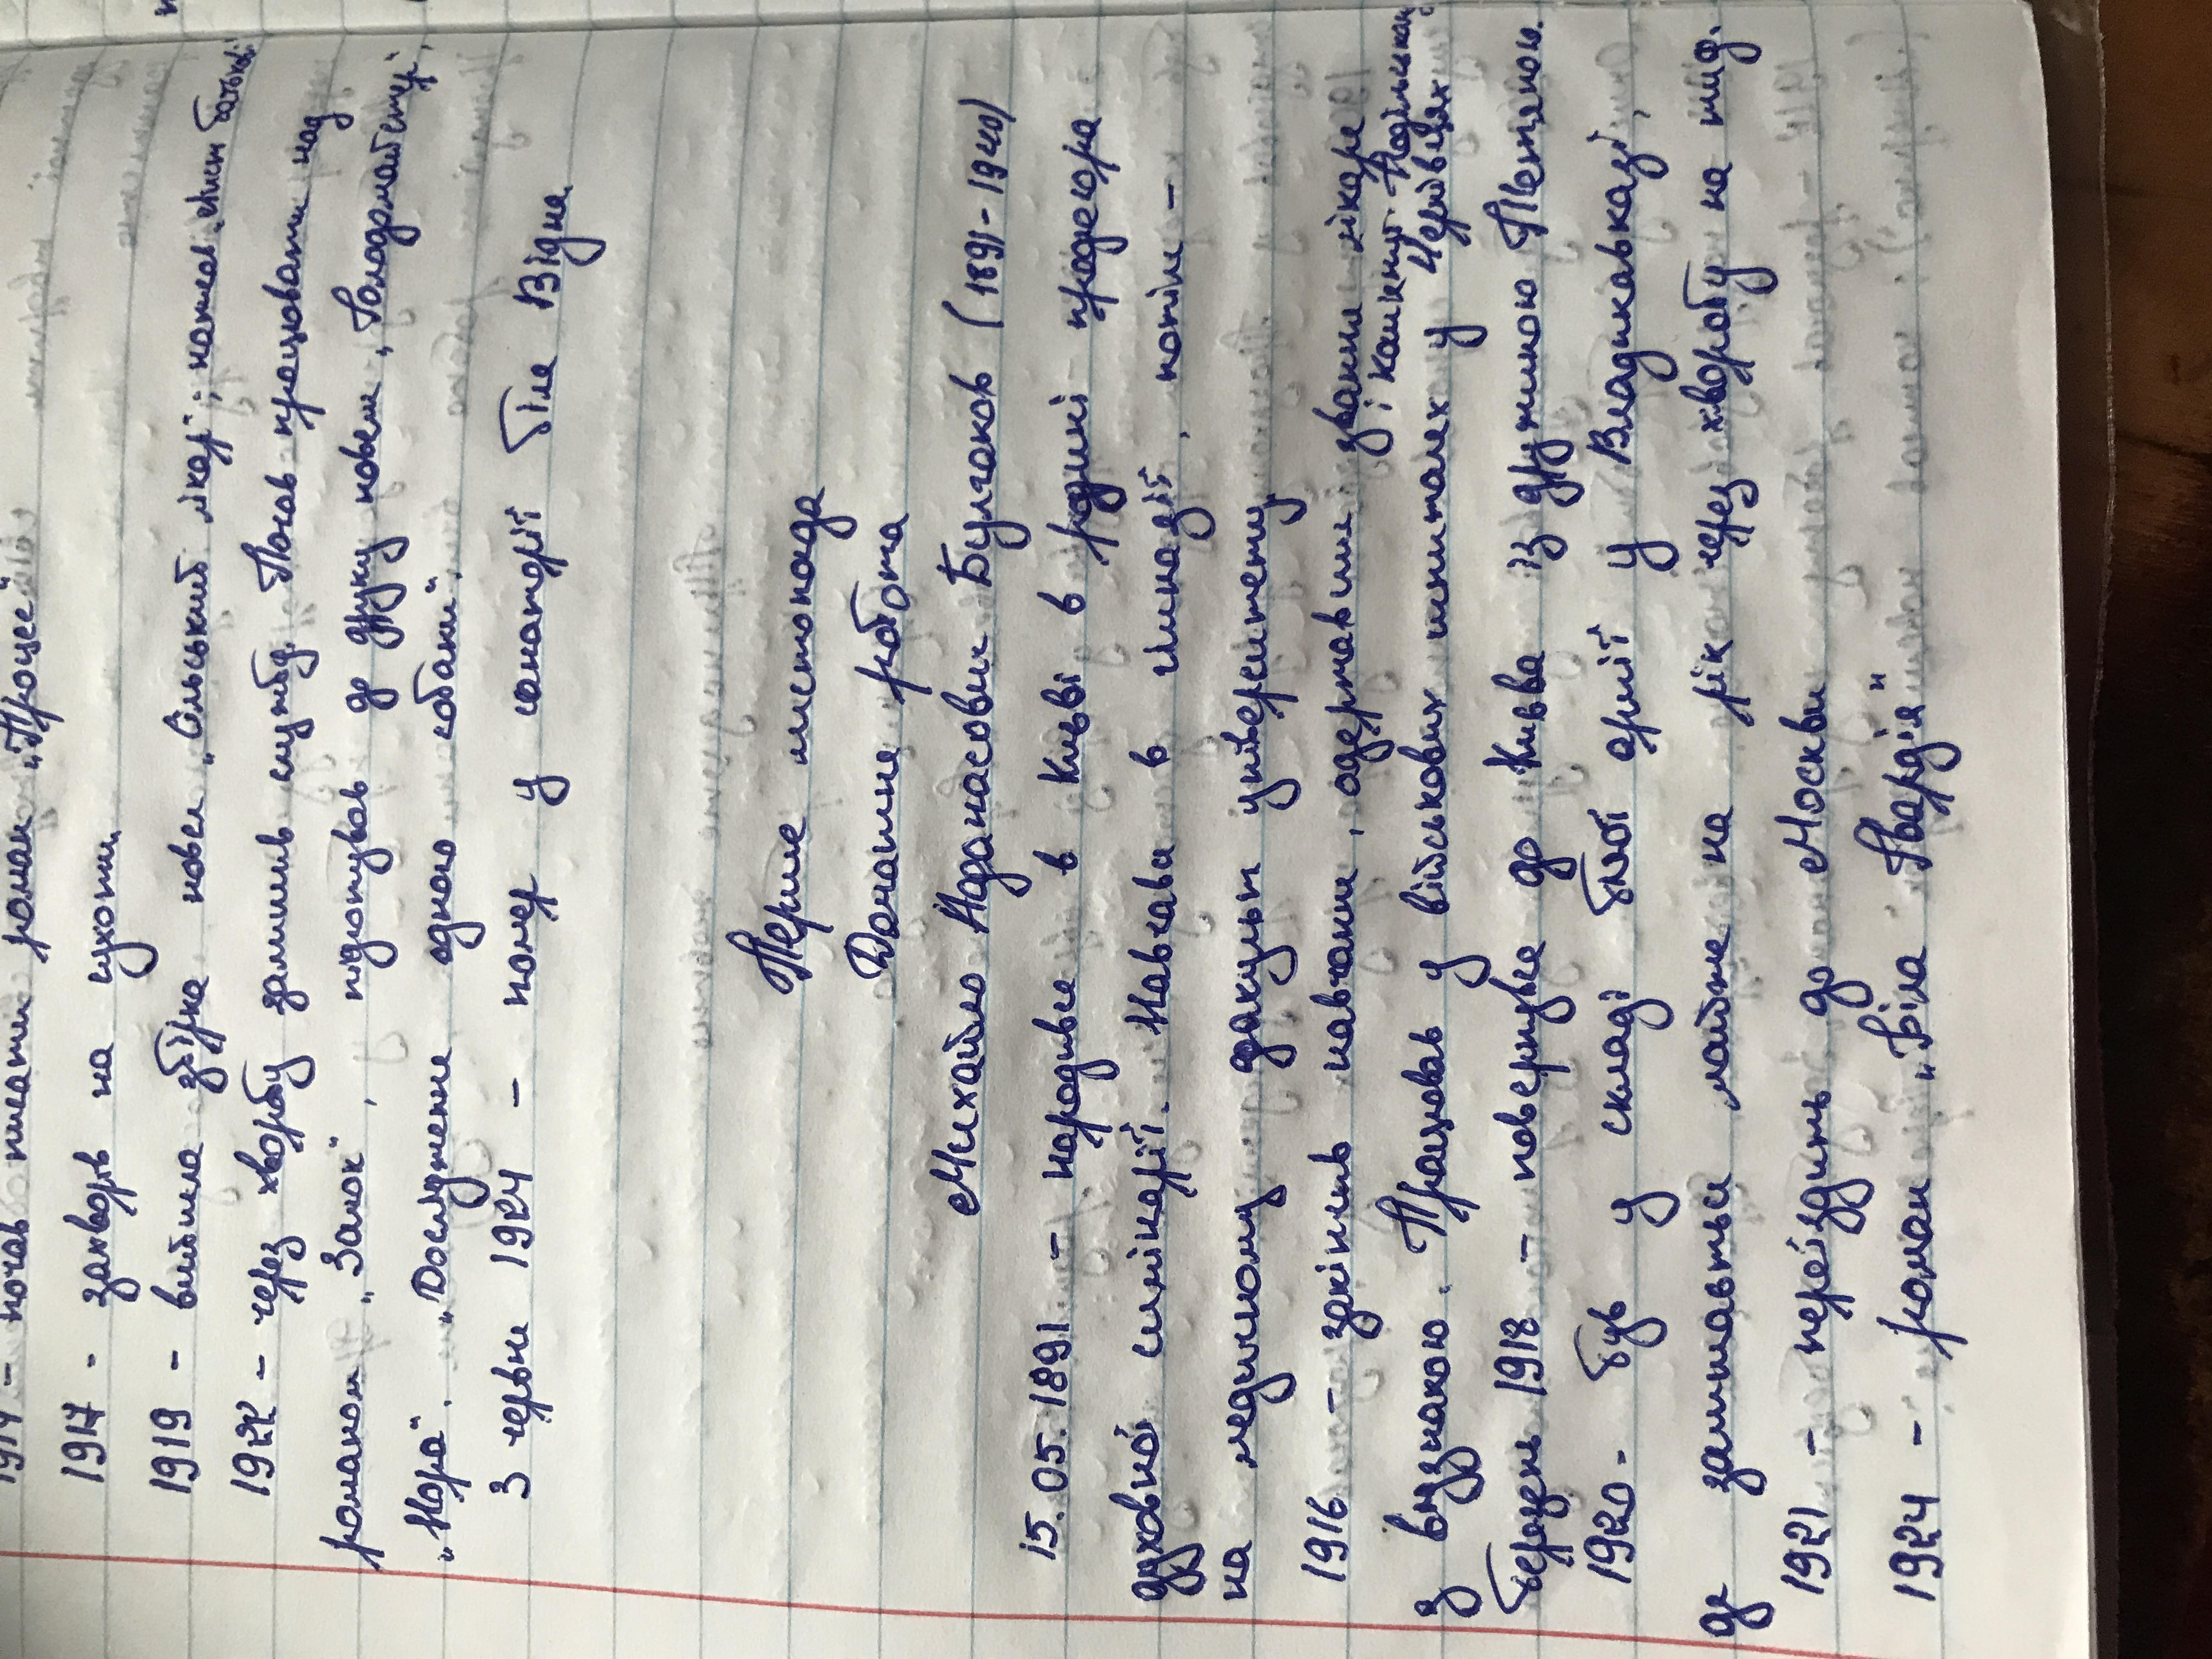 1914 – почав писати роман „Процес"
1917 - захворів на сухоти
1919 – вийшла збірка новел „Сільський лікар", написав „Лист батькові"
1922 – через хворобу залишив службу. Почав працювати над
романом „Замок", підготував до друку новели „Голодмайстер",
„Нора", „Дослідження одного собаки".
3 червня 1924 – помер у санаторії біля Відня
Перше листопада
Домашня робота
Михайло Афанасович Булгаков (1891-1940)
15.05.1891 – народився в Києві в родині професора
духовної семінарії. Навчався в гімназії, потім –
на медичному факультеті університету
1916 – закінчив навчання, одержавши звання лікаря
з відзнакою. Працював у військових шпиталях у Чернівцях
і Камянці-Подільському
березень 1918 – повернувся до Києва із дружиною Тетяною.
1920 - був у складі білої армії у Владикавказі,
де залишається майже на рік через хворобу на тиф.
1921 – переїздить до Москви
1924 – роман „Біла Гвардія"